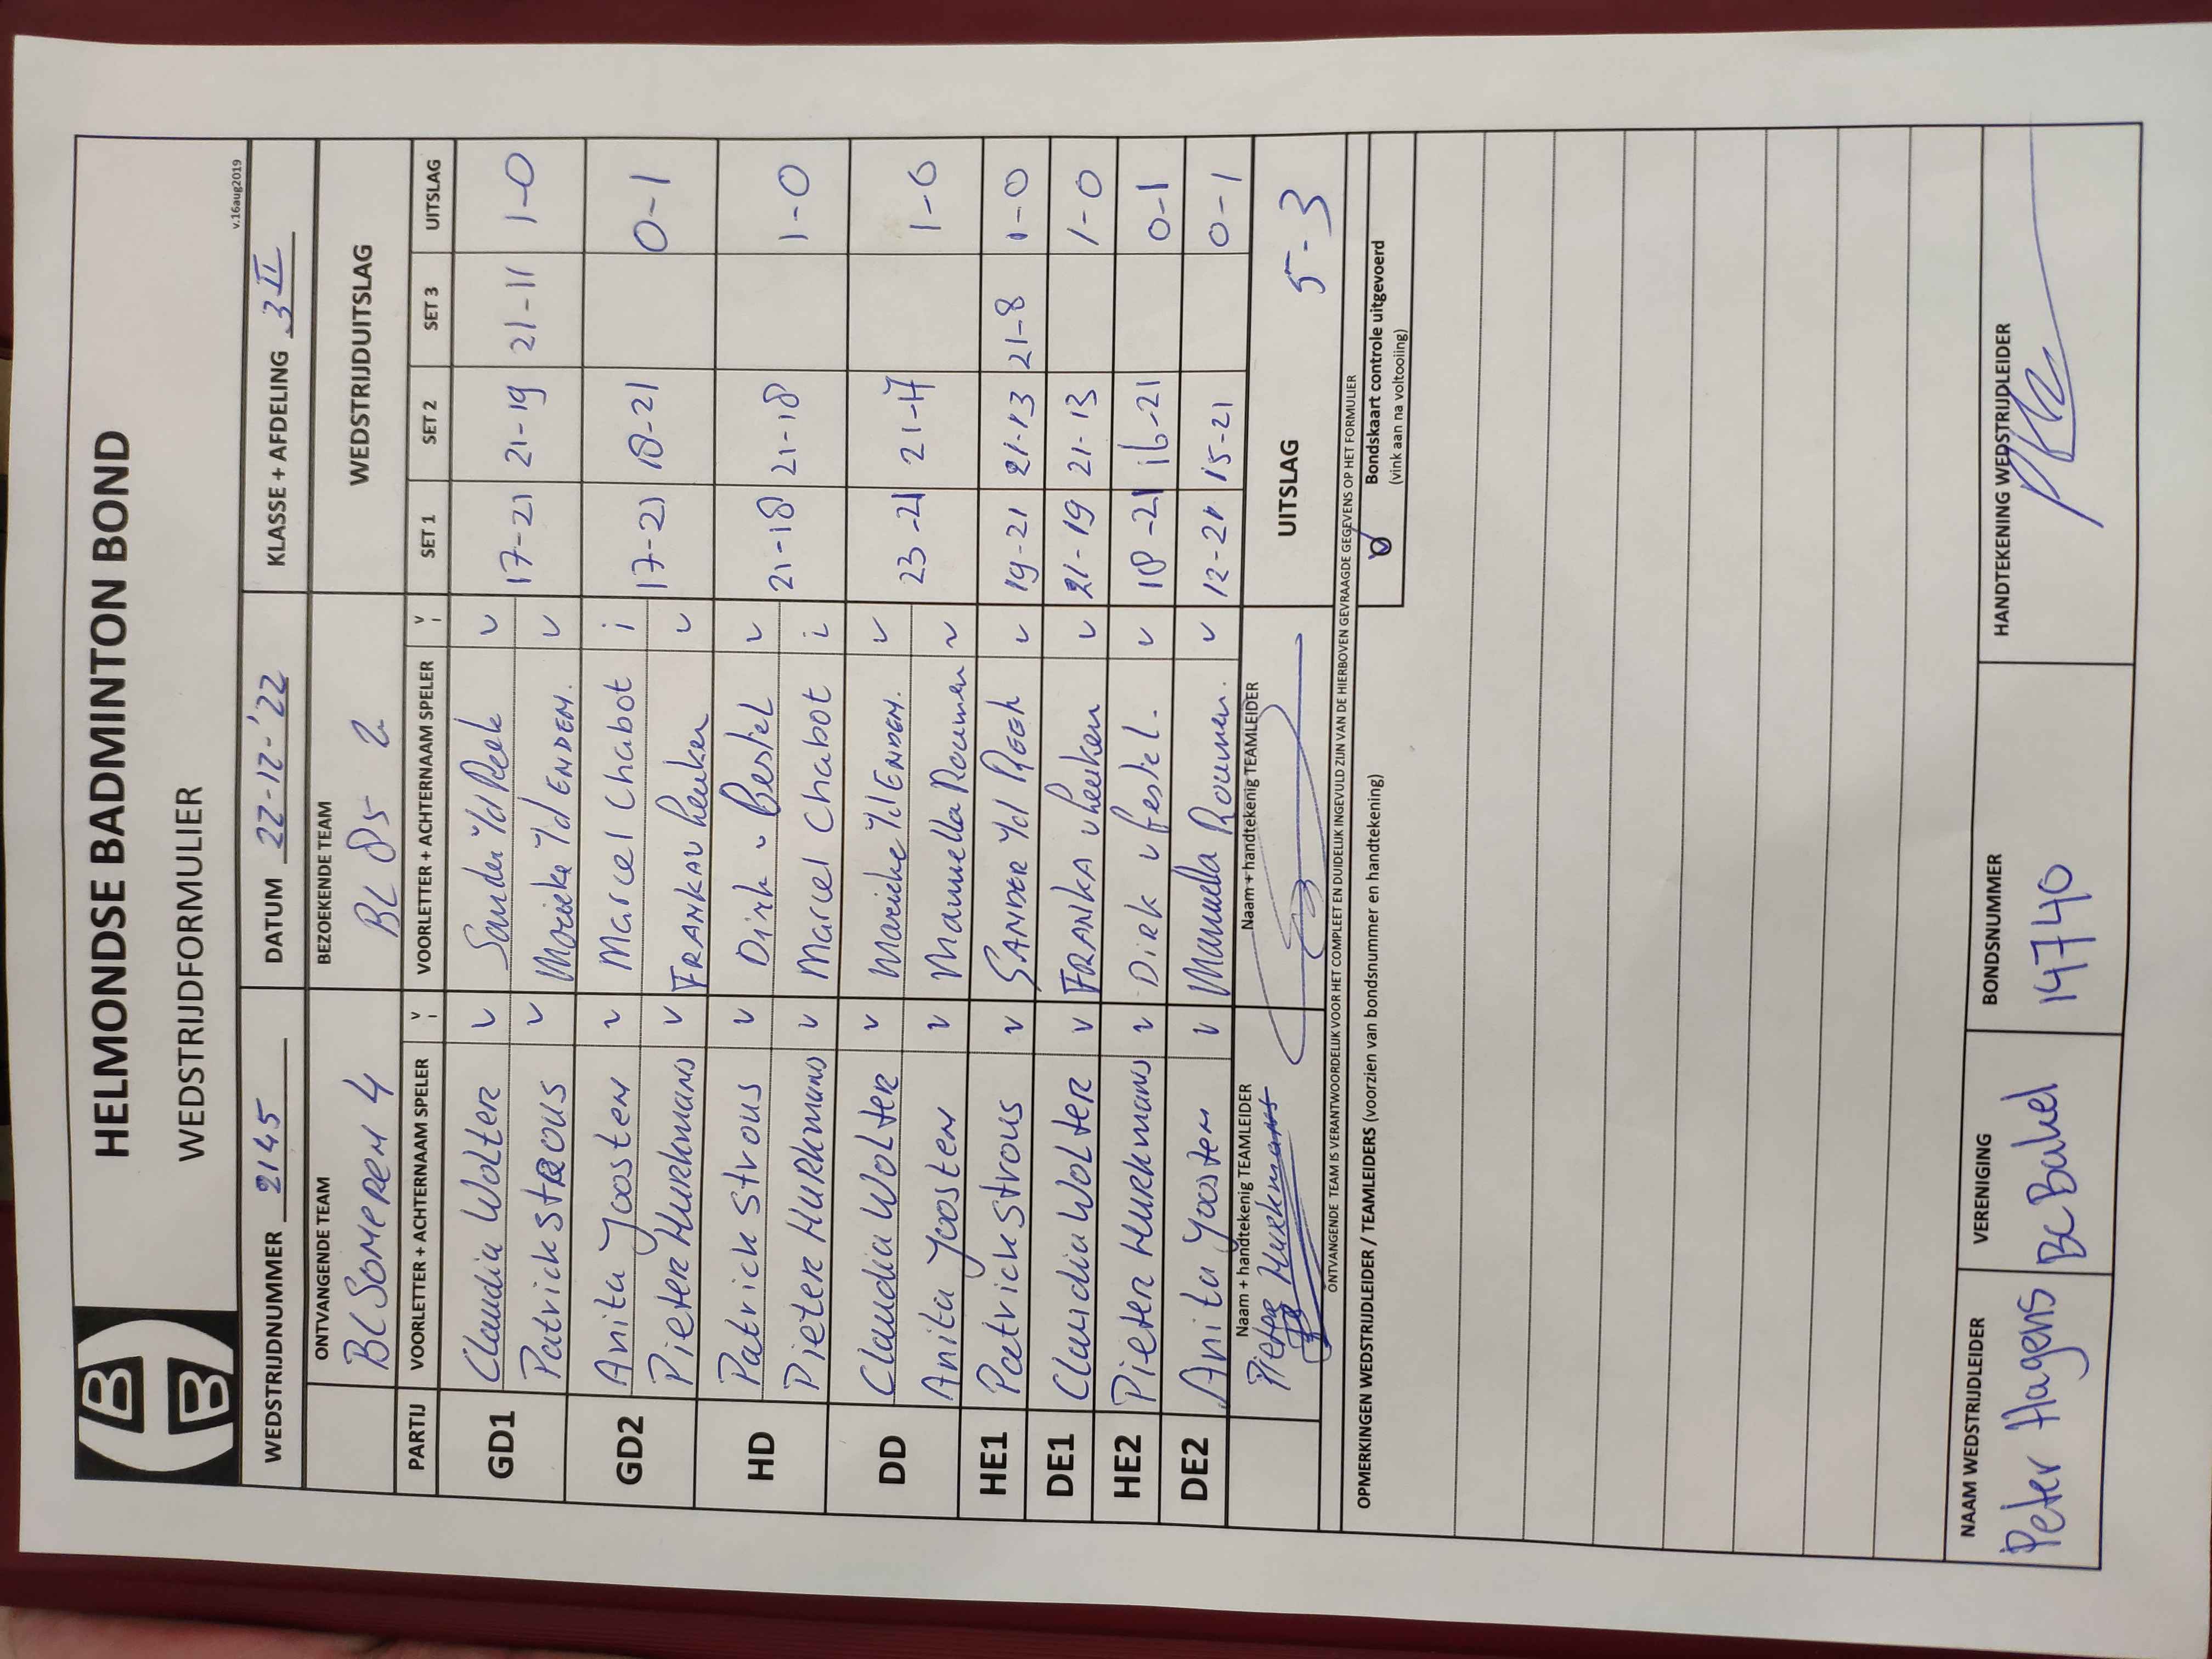 HELMONDSE BADMINTON BOND
WEDSTRIJDFORMULIER
v.16aug2019
WEDSTRIJDNUMMER 2145 DATUM 22-12-'22 KLASSE + AFDELING 3 II
ONTVANGENDE TEAM BEZOEKENDE TEAM WEDSTRIJDUITSLAG
BC SOMEREN 4 BC 85 2
PARTIJ VOORLETTER + ACHTERNAAM SPELER V I VOORLETTER + ACHTERNAAM SPELER V I SET 1 SET 2 SET 3 UITSLAG
GD1 Claudia Wolter v Sander v/d Reek v 17-21 21-19 21-11 1-0
Patrick Strous v Marieke v/d ENDEM. v
GD2 Anita Joosten v Marcel Chabot i 17-21 18-21 0-1
Pieter Hurkmans v v
HD Patrick Strous v Dirk v Bestel v 21-18 21-18 1-0
Pieter Hurkmans v Marcel Chabot i
DD Claudia Wolter v Marieke v/d ENDEM. v 23-21 21-17 1-0
Anita Joosten v Manuella Roumen v
HE1 Patrick Strous v SANDER v/d v 19-21 21-13 21-8 1-0
DE1 Claudia Wolter v FRANKA v 21-19 21-13 1-0
HE2 Pieter Hurkmans v Dirk v Bestel. v 18-21 16-21 0-1
DE2 Anita Joosten v Manuella Roumen. v 12-21 15-21 0-1
Naam + handtekenig TEAMLEIDER Naam + handtekenig TEAMLEIDER UITSLAG 5-3
Pieter Hurkmans
ONTVANGENDE TEAM IS VERANTWOORDELIJK VOOR HET COMPLEET EN DUIDELIJK INGEVULD ZIJN VAN DE HIERBOVEN GEVRAAGDE GEGEVENS OP HET FORMULIER
OPMERKINGEN WEDSTRIJDLEIDER / TEAMLEIDERS (voorzien van bondsnummer en handtekening)
Bondskaart controle uitgevoerd
(vink aan na voltooiing)
NAAM WEDSTRIJDLEIDER VERENIGING BONDSNUMMER HANDTEKENING WEDSTRIJDLEIDER
Peter Hagens BC Bakel 14740